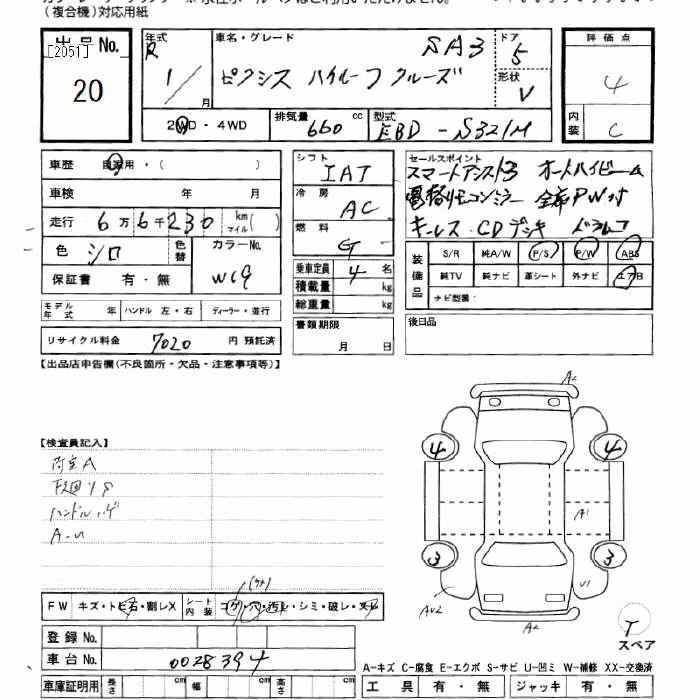 (複合機)対応用紙
出品No.
[2051]
20
年式
R
1 / 月
車名・グレード
SA3
ピクシス バン クルーズ
ドア
5
形状
V
評価点
4
内装
C
2WD・4WD
排気量 660 cc
型式 EBD-S321M
車歴 自家用・( )
車検 年 月
走行 6万6千230 km マイル( )
色 シロ
色替
カラーNo. W19
保証書 有・無
モデル年式 年 ハンドル 左・右 ディーラー・並行
リサイクル料金 7020 円 預託済
シフト IAT
冷房 AC
燃料 G
乗車定員 4 名
積載量 kg
総重量 kg
書類期限
月 日
セールスポイント
スマートアシスト3 オートハイビーム
電格リモコンミラー 全席PW付
キーレス CDデッキ ドラレコ
装備品
S/R 純A/W P/S P/W ABS
純TV 純ナビ 革シート 外ナビ エアB
ナビ型番:
後日品
【出品店申告欄(不良箇所・欠品・注意事項等)】
【検査員記入】
内室A
下廻りS
ハンドルハゲ
A・U
FW キズ・トビ石・割レX
シート内装 コゲ・穴・汚レ・シミ・破レ・スレ
登録No.
車台No. 0028394
車庫証明用 長さ cm 幅 cm 高さ cm
A2
4
4
A1
3
3
AU2
U1
A2
T
スペア
A-キズ C-腐食 E-エクボ S-サビ U-凹ミ W-補修 XX-交換済
工具 有・無 ジャッキ 有・無